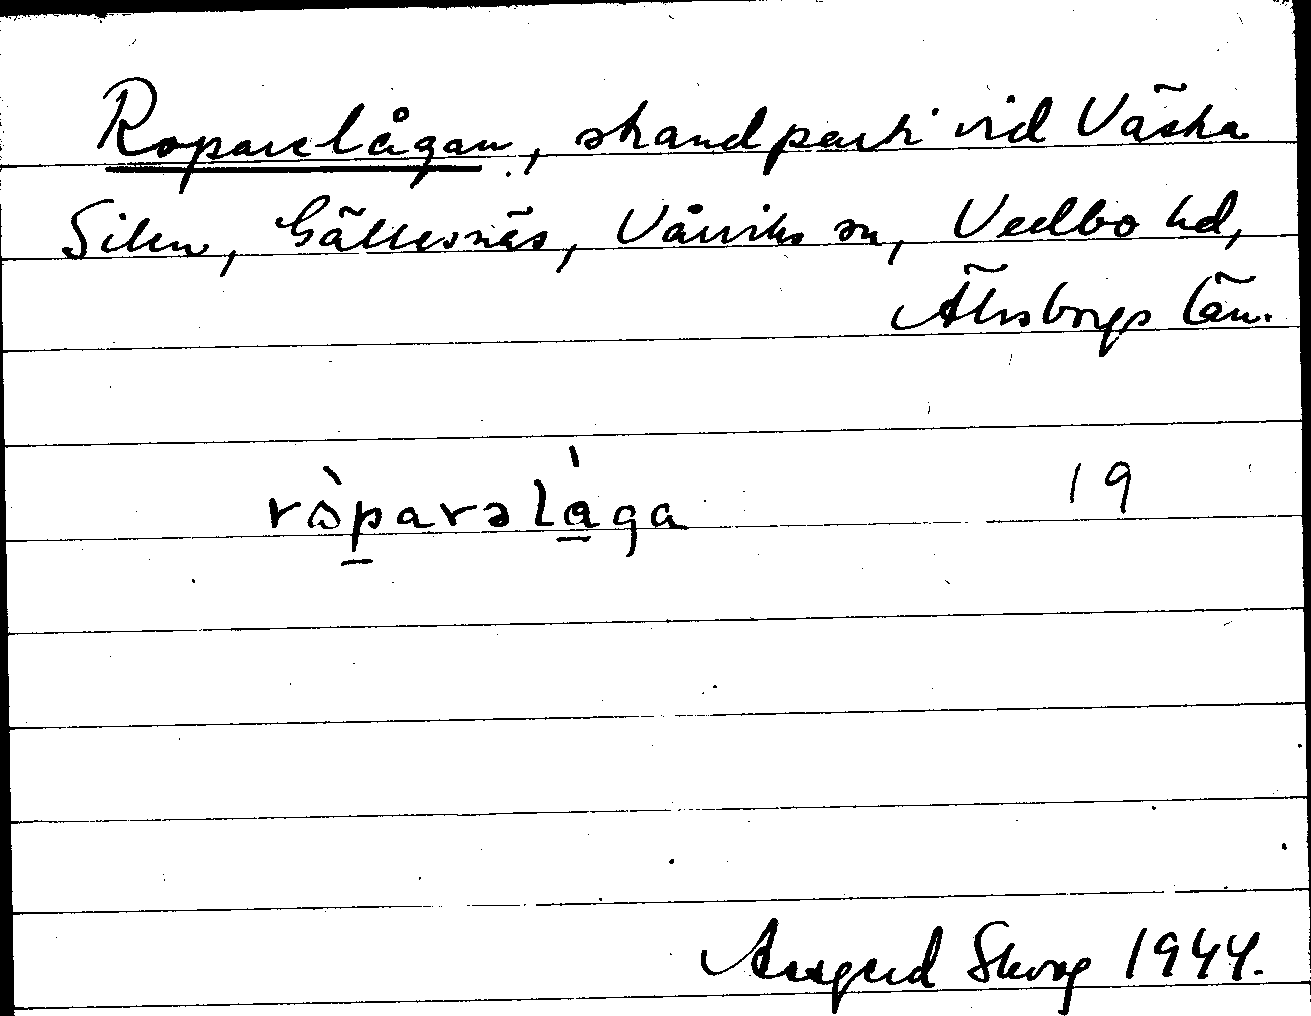 Roparelågan, strandparti vid Västra
Silen, Gällesnäs, Vårviks sn, Vedbo hd,
Älvsborgs län.
ròparəLåga 19
Skog 1944.